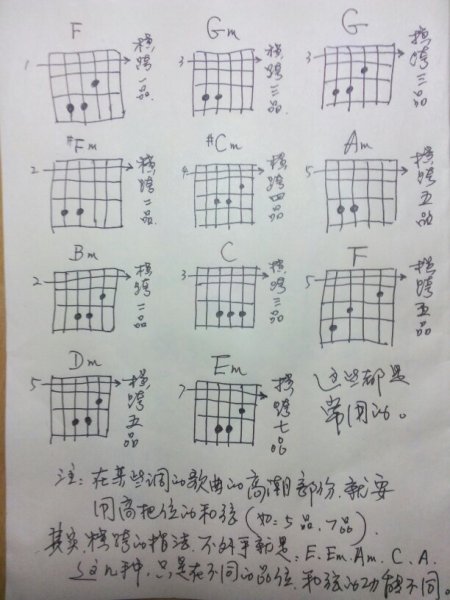 F Gm G
1 横跨一品. 3 横跨三品 3 横跨三品
#Fm #Cm Am
2 横跨二品. 4 横跨四品 5 横跨五品
Bm C F
2 横跨二品 3 横跨三品 5 横跨五品
Dm Em
5 横跨五品 7 横跨七品
这些都是
常用的。
注: 在某些调的歌曲的高潮部份, 就要
用高把位的和弦 (如: 5品, 7品).
其实, 横跨的指法, 不外乎就是: E. Em. Am. C. A.
这几种, 只是在不同的品位, 和弦的功能不同。